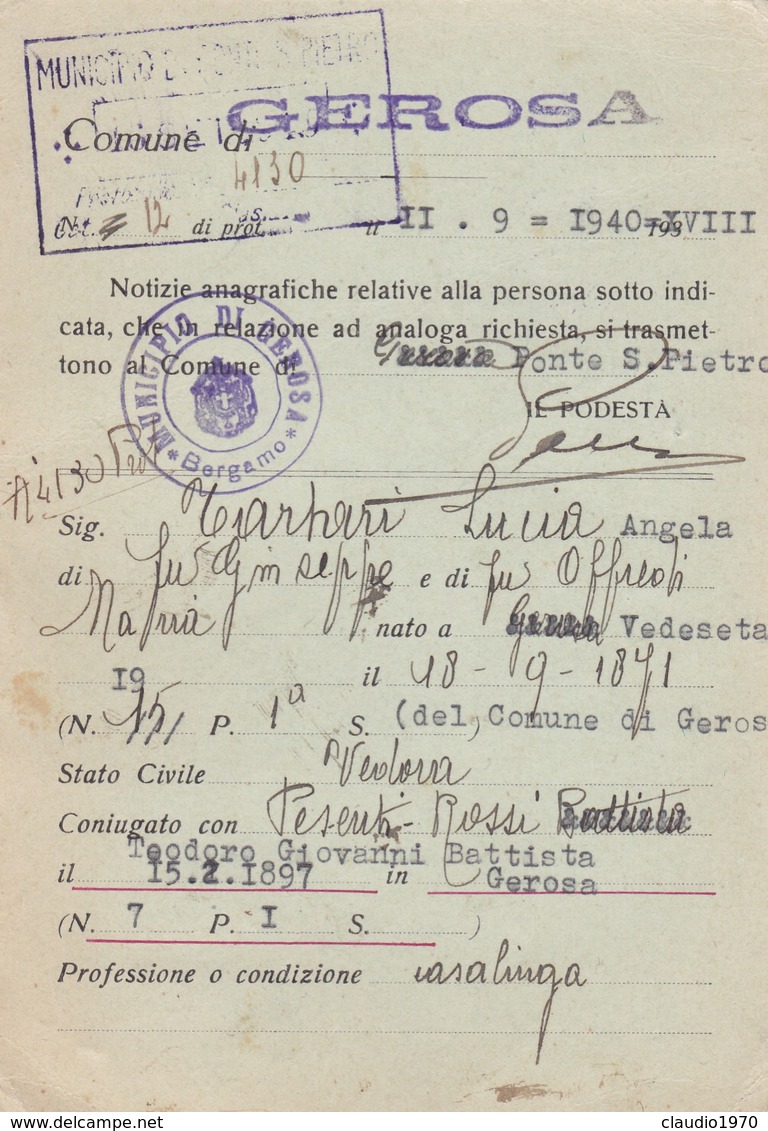 MUNICIPIO DI PONTE S. PIETRO
Comune di GEROSA
4130
N. 12 di prot. il II . 9 = I940=XVIII
193
Cat. Clas.
Notizie anagrafiche relative alla persona sotto indi-
cata, che in relazione ad analoga richiesta, si trasmet-
tono al Comune di Ponte S.Pietro
MUNICIPIO DI GEROSA
* Bergamo *
IL PODESTÀ
4130 Prot
Sig. Lucia Angela
di fu Giuseppe e di fu Offredi
Maria nato a Gerosa Vedeseta
I9 il 18 - 9 - 1871
(N. 15 P. 1ª S. ) (del Comune di Geros
Stato Civile Vedova
Coniugato con Pesenti - Rossi Battista
Teodoro Giovanni Battista
il I5.2.I897 in Gerosa
(N. 7 P. I S. )
Professione o condizione casalinga
claudio1970